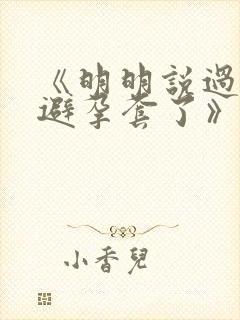 《明明說過
避孕套了》
小香兒